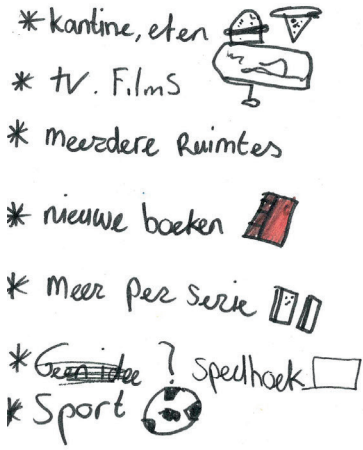 * kantine, eten
* tv. Films
* meerdere Ruimtes
* nieuwe boeken
* Meer per serie
* Geen idee ? speelhoek
* Sport